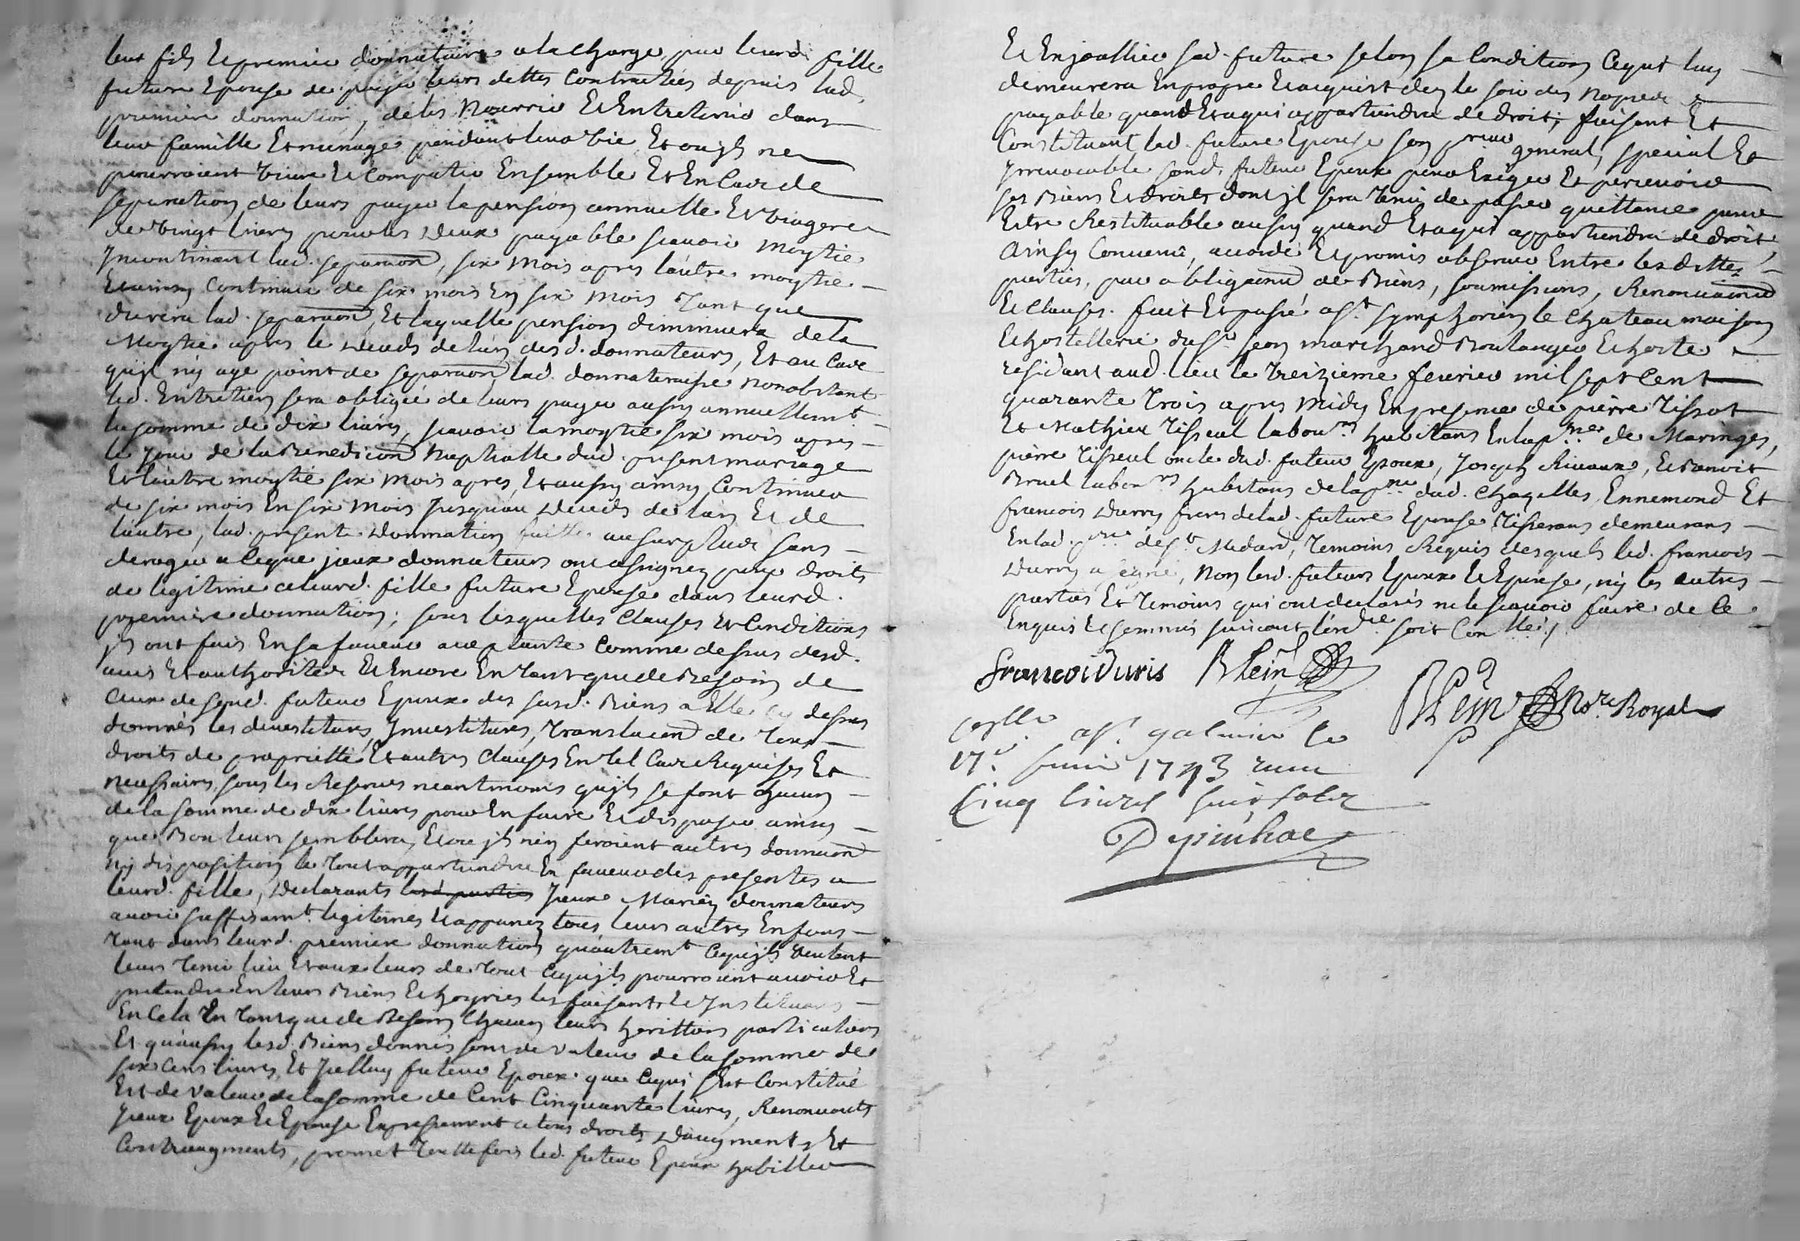 leur fils et premier donnataire a la charge par leurd. fille
future Epouse de payer leurs dettes Contractées depuis lad.
premiere donnation, de les Nourrir Et Entretenir dans
leur famille Et menage pendant leur vie Et ou jls ne
pourroient vivre Et Compatir Ensemble Et En Cas de
separation de leurs payer la pension annuelle Et viagere
de vingt livres pour les deux payable scavoir moytié
jncontinant lad. separaon, six mois apres l'autre moytié
Et ainsy Continuer de six mois En six mois Tant que
durera lad. separaon, Et laquelle pension diminuera de la
Moytié apres le Deceds de l'un desd. donnateurs, Et au Cas
qu'jl n'y aye point de separaon lad. donnateraisse nonobstant
led. Entretien sera obligée de leurs payer aussy annuellemt
la somme de dix livres, scavoir la moytié six mois apres
le jour de la Benediction Nuptialle dud. present mariage
Et l'autre moytié six mois apres, Et aussy ainsy Continuer
de six mois En six mois jusqu'au Deceds de l'un Et de
l'autre, lad. presente Donnation faitte au surplus sans
deroger a Ceque jceux donnateurs ont assignez pour droits
de legitime a leurd. fille future Epouse dans leurd.
premiere donnation; sous lesquelles Clauses Et Conditions
jls ont fais En sa faveur acceptante Comme dessus desd.
avis Et authorité Et Encore En Tant que de Besoin de
Celui de sond. futeur Epoux des susd. Biens a Elle cy dessus
donnés les devestitures, jnvestitures, Translaon de Tous
droits de proprietté Et autres Clauses En tel Cas Requises Et
necessaires, sous les Reserves neantmoins qu'jls se font chacun
de la somme de dix livres pour En faire Et disposer ainsy
que Bon leurs semblera, Et ou jls n'en feroient autres donnaon
ny disposition le Tout appartiendra En faveur des presentes a
leurd. fille, Declarants lesd. parties jceux Mariez donnateurs
avoir suffisamt legitimés Et appanez tous leurs autres Enfans
Tant dans leurd. premiere donnation qu'autremt Cequ'jls veulent
leurs Tenir lieu Et aux leurs de Tout Cequ'jls pourroient avoir Et
pretendre En leurs Biens Et hoyries les faisants Et jnstituans
En Cela En Tant que de Besoin Chacun leurs heritiers particuliers
Et qu'aussy lesd. Biens donnés sont de valeur de la somme de
six Cens livres, Et jcelluy futeur Epoux que Cequi s'est Constitué
Est de valeur de la somme de Cent Cinquante livres, Renonceants
jceux Epoux Et Epouse Expressement a tous droits D'augments Et
Contreaugments, promet Touttefois led. futeur Epoux habiller
Et Enjoallier sad. future selon sa Condition Cequi luy
demeurera En propre Et acquis des le soir des Nopces
payable quand Et a qui appartiendra de droit; faisant Et
Constituant lad. future Epouse son preur general, special Et
jrrevocable sond. futeur Epoux pour Exiger Et percevoir
ses Biens Et droits dont jl sera Tenu de passer quittance pour
Estre Restituable aussy quand Et a qui appartiendra de droit,
Ainsy Convenû, accordé Et promis observer Entre lesdittes
parties, par obligaons de Biens, soumissions, Renonciaons
Et Clauses. fait Et passé a St. Symphorien le Chateau maison
Et hostellerie du Sr. jean marchand Boulanger Et hoste
residant aud. lieu le Treizieme fevrier mil sept Cent
quarante Trois apres Midy En presence de pierre Tissot
Et Mathieu Tisseul labourrs habitans En la psse de Maringes,
pierre Tisseul oncle dud. futeur Epoux, Joseph Rivaux, Et Benoit
Bruel labourrs habitans de la psse dud. Chazelles, Ennemond Et
francois Durry freres de lad. future Epouse Tisserans demeurans
En lad. psse de St. Medard, Temoins Requis desquels led. francois
Durry a signé, Non lesd. futeurs Epoux Et Epouse, ny les autres
parties Et Temoins qui ont declarés ne le scavoir faire de Ce
Enquis Et sommés suivant l'ordce soit Conllé.
francoi Duris Blein
Blein Nore Royal
Conllé a St. galmier le
17e fevrier 1743 recu
Cinq livres huit sols
Depinhac